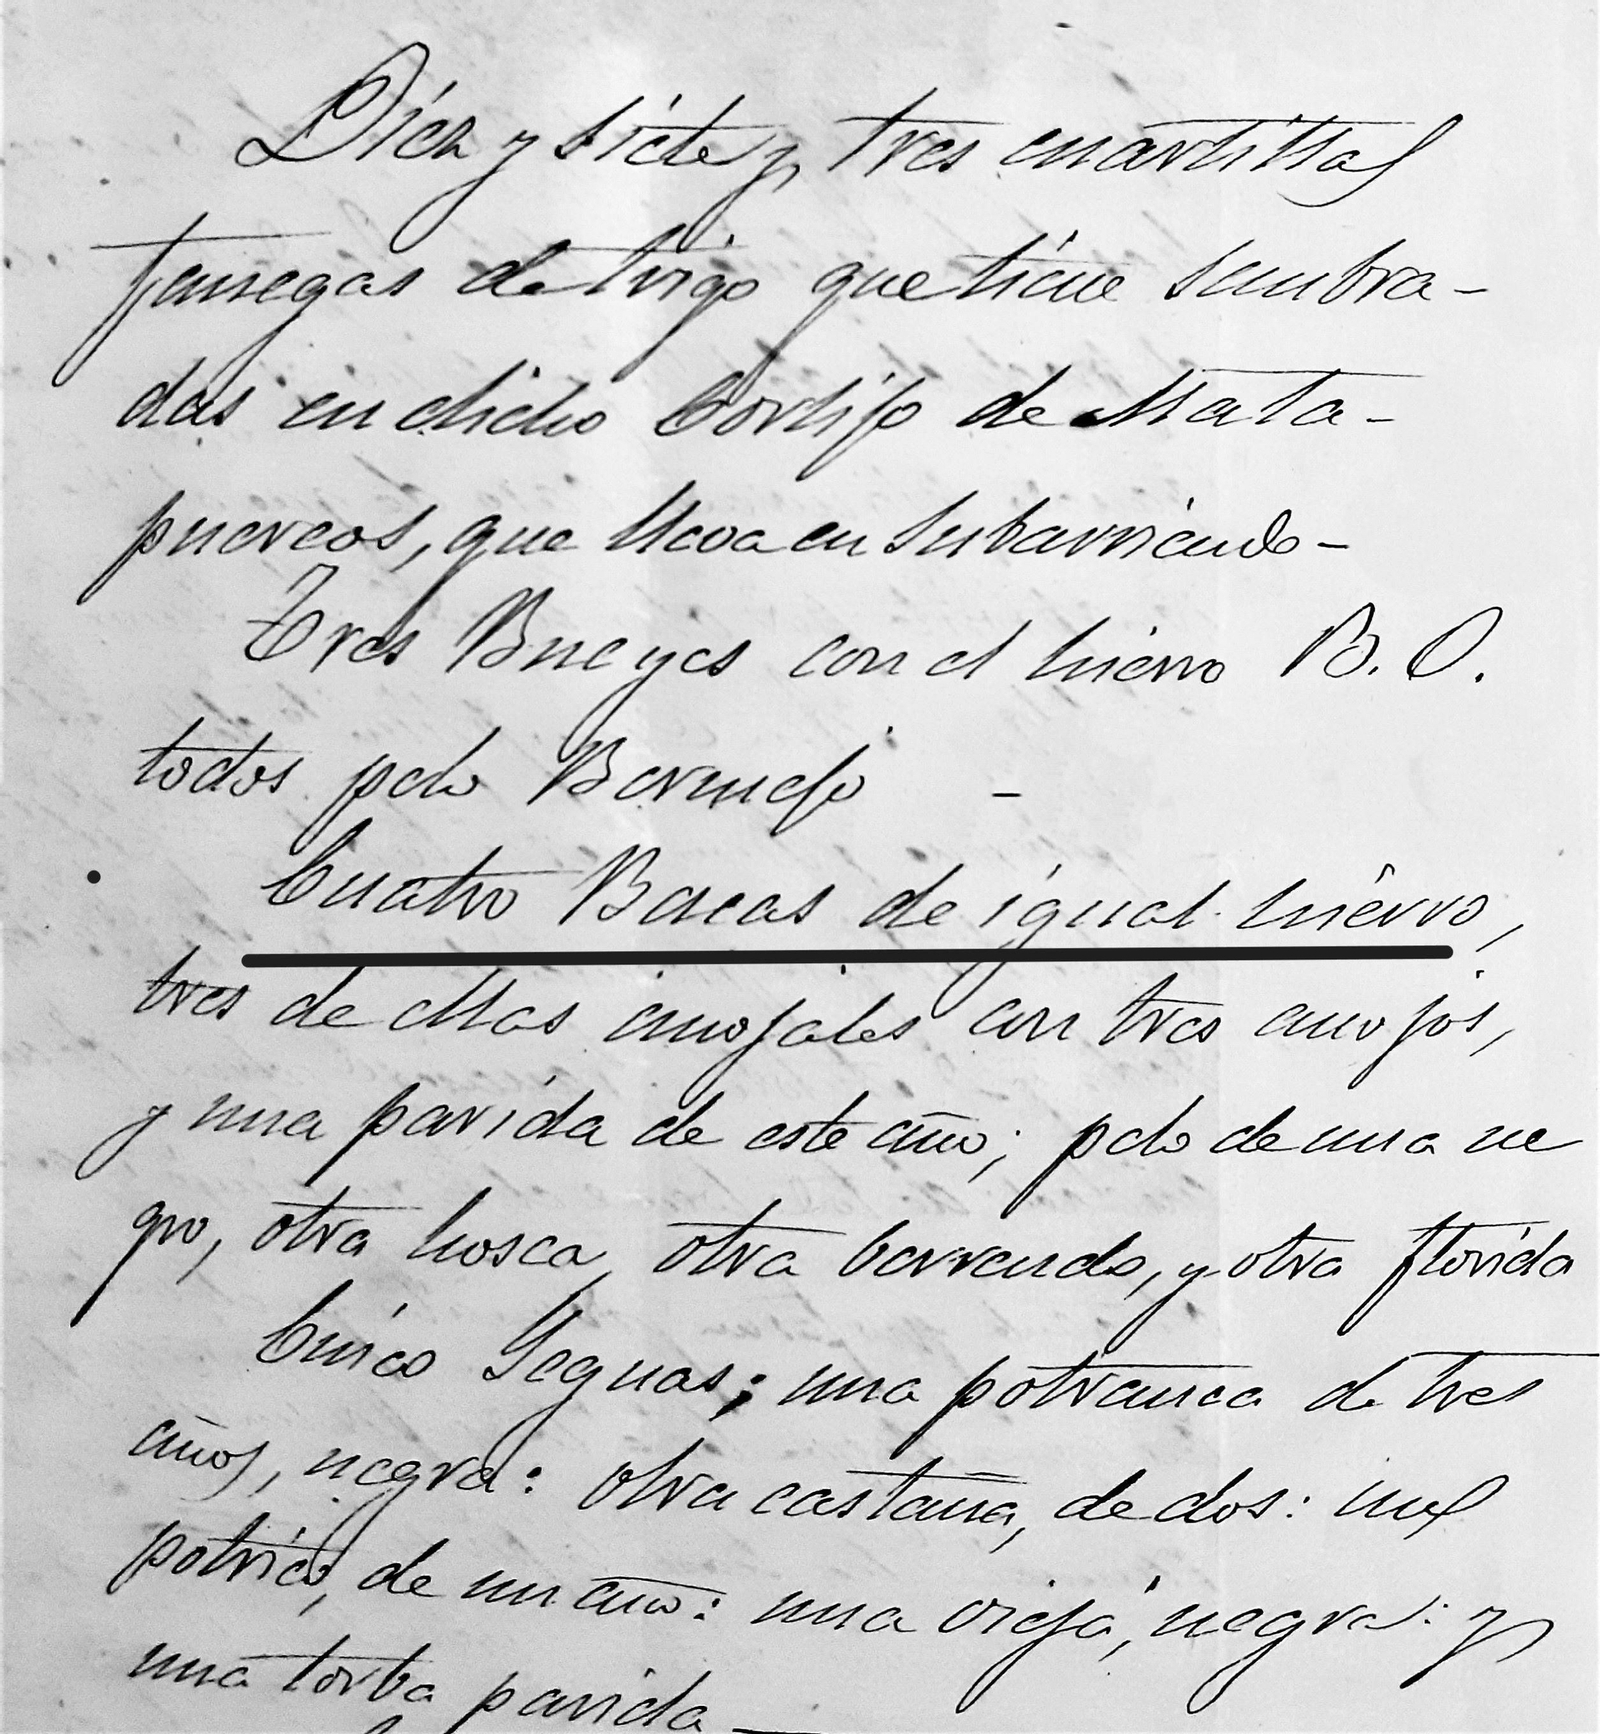 Diez y siete y tres cuartillas
fanegas de trigo que tiene sembra-
das en dicho Cortijo de Mata-
puercos, que lleva en subarriendo-
Tres Bueyes con el hierro B. O.
todos pelo Bermejo -
Cuatro Bacas de igual hierro,
tres de ellas anojales con tres anojos,
y una parida de este año; pelo de una ne
gro, otra hosca, otra berrenda, y otra florida
Cinco Yeguas; una potranca de tres
años, negra: otra castaña, de dos: un
potrico, de un año: una vieja, negra: y
una torba parida -